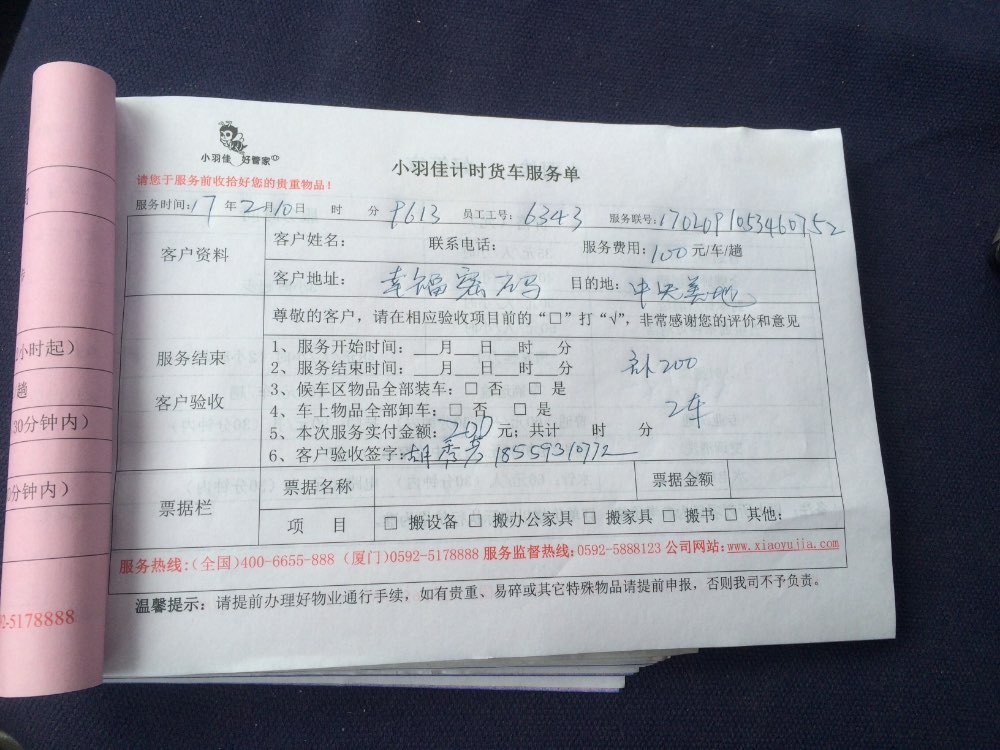 小羽佳 好管家
小羽佳计时货车服务单
请您于服务前收拾好您的贵重物品！
服务时间:17年2月10日 时 分 9613 员工工号: 6343 服务联号:1702091053460752
客户资料
客户姓名: 联系电话: 服务费用:100元/车/趟
客户地址: 幸福密码 目的地: 中央美地
尊敬的客户，请在相应验收项目前的“□”打“√”，非常感谢您的评价和意见
服务结束
客户验收
1、服务开始时间:___月___日___时___分
2、服务结束时间:___月___日___时___分 200
3、候车区物品全部装车:□ 否 □ 是
4、车上物品全部卸车:□ 否 □ 是 2车
5、本次服务实付金额:200元；共计 时 分
6、客户验收签字:胡秀 18559310772
票据栏
票据名称 票据金额
项 目 □ 搬设备 □ 搬办公家具 □ 搬家具 □ 搬书 □ 其他:
服务热线:(全国)400-6655-888 (厦门)0592-5178888 服务监督热线:0592-5888123 公司网站:www.xiaoyujia.com
温馨提示：请提前办理好物业通行手续，如有贵重、易碎或其它特殊物品请提前申报，否则我司不予负责。
小时起）
趟
30分钟内）
分钟内）
2-5178888